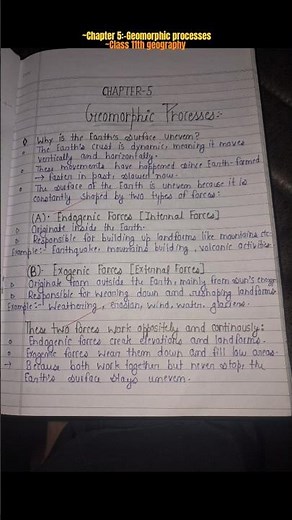 -Chapter 5:-Geomorphic processes
-Class 11th geography
CHAPTER-5
Geomorphic Processes:-
Why is the Earth's surface uneven?
The Earth's crust is dynamic meaning it moves
vertically and horizontally.
These movements have happened since Earth formed
→ faster in past, slower now.
The surface of the Earth is uneven because it is
constantly shaped by two types of forces:
(A). Endogenic Forces [Internal Forces]
Originate inside the Earth.
Responsible for building up landforms like mountains etc.
Example:- Earthquake, mountains building, volcanic activities
(B). Exogenic Forces [External Forces]
Originate from outside the Earth, mainly from sun's energy
Responsible for wearing down and reshaping landforms
Example:- Weathering, erosion, wind, water, glaciers.
These two forces work oppositely and continously:
Endogenic forces creak elevations and landforms.
Exogenic forces wear them down and fill low areas.
→ Because both work together but never stop, the
Earth's surface stays uneven.